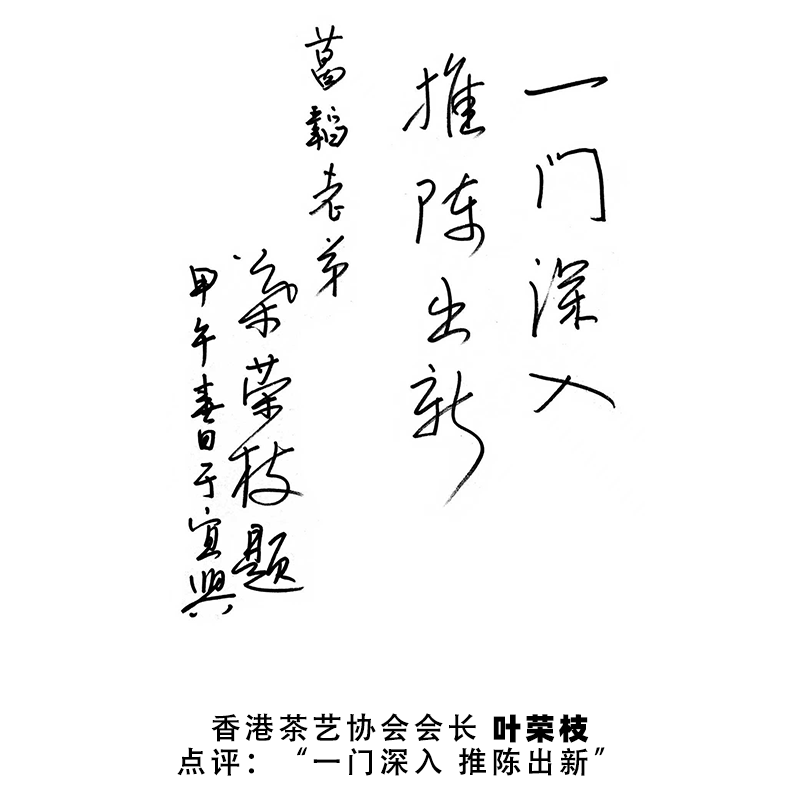 一门深入
推陈出新
菖韜老弟
葉荣枝题
甲午春日于宜興
香港茶艺协会会长 叶荣枝
点评：“一门深入 推陈出新”